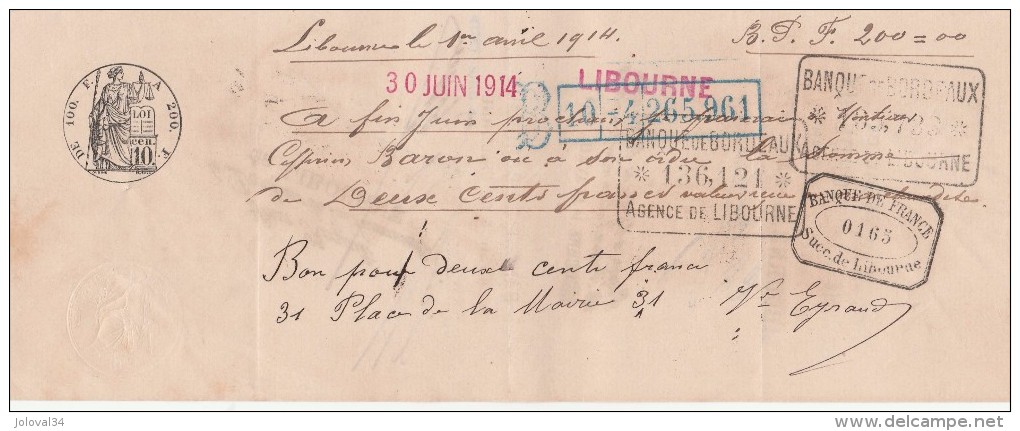 Libourne le 1er avril 1914. B. P. F. 200=00
30 JUIN 1914 LIBOURNE
DE 100. F. A 200. F.
LOI
cen. 10
10 - 4,265,961
BANQUE DE BORDEAUX
AGENCE DE LIBOURNE
A fin Juin prochain je paierai à
Cyprien Baron ou à son ordre la somme
de Deux Cents francs valeur reçue
BANQUE DE BORDEAUX
* 136,121 *
AGENCE DE LIBOURNE
BANQUE DE FRANCE
0165
Succ. de Libourne
Bon pour deux cents francs
31 Place de la Mairie 31 Vve Eyraud
joloval34 delcampe.net